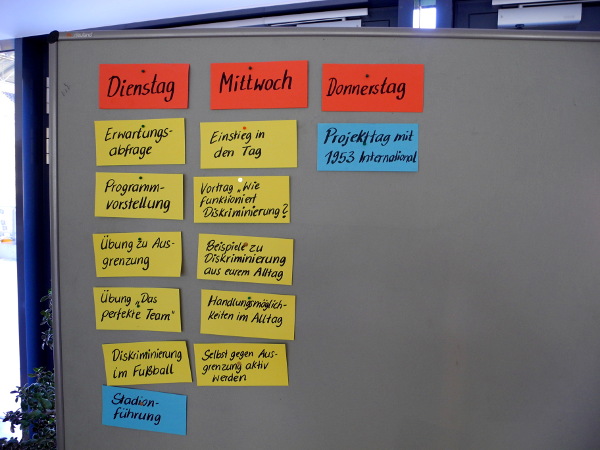 Dienstag
Erwartungs-
abfrage
Programm-
vorstellung
Übung zu Aus-
grenzung
Übung „Das
perfekte Team"
Diskriminierung
im Fußball
Stadion-
führung
Mittwoch
Einstieg in
den Tag
Vortrag „Wie
funktioniert
Diskriminierung?
Beispiele zu
Diskriminierung
aus eurem Alltag
Handlungsmöglich-
keiten im Alltag
Selbst gegen Aus-
grenzung aktiv
werden
Donnerstag
Projekttag mit
1953 International